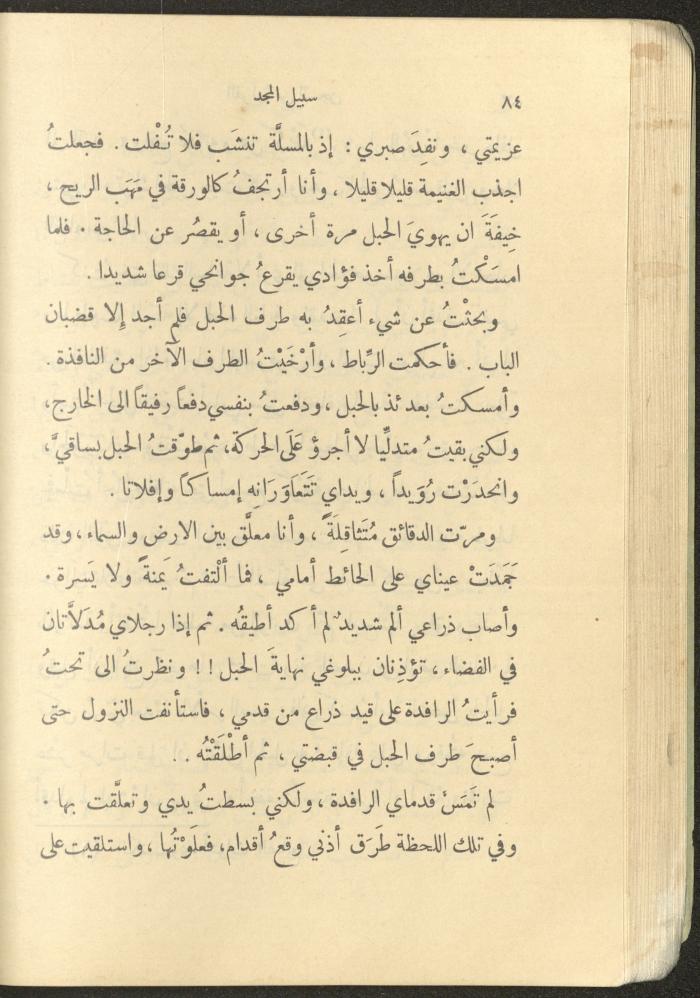 ٨٤
سبيل المجد
عزيمتي ، ونفِدَ صبري : إذ بالمسلَّة تنشَب فلا تُفْلت . فجعلتُ
اجذب الغنيمة قليلا قليلا ، وأنا أرتجفُ كالورقة في مَهَب الريح ،
خِيفَةَ ان يهويَ الحبل مرة أخرى ، أو يقصُر عن الحاجة . فلما
امسَكْتُ بطرفه أخذ فؤادي يقرعُ جوانحي قرعا شديدا .
وبحثْتُ عن شيء أعقِدُ به طرف الحبل فلم أجد إلا قضبان
الباب . فأحكمت الرِّباط ، وأرْخَيْتُ الطرف الآخر من النافذة .
وأمسكتُ بعد ئذ بالحبل ، ودفعتُ بنفسي دفعاً رفيقاً الى الخارج ،
ولكني بقيتُ متدلِّيا لا أجرؤ عَلَى الحركة ، ثم طوّقتُ الحبل بساقيَّ ،
وانحدَرْت رُوَيداً ، ويداي تَتَعَاوَرَانِه إمساكاً وإفلاتا .
ومرّت الدقائق مُتَثاقِلَةً ، وأنا معلَّق بين الارض والسماء ، وقد
جَمَدَتْ عيناي على الحائط أمامي ، فما ألْتفتُ يَمنةً ولا يَسرة .
وأصاب ذراعي ألم شديدٌ لم أكد أطيقُه . ثم إذا رجلاي مُدَلاَّتان
في الفضاء ، تؤذِنان ببلوغي نهايةَ الحبل !! ونظرتُ الى تحتُ
فرأيتُ الرافدة على قيد ذراع من قدمي ، فاستأنفت النزول حتى
أصبحَ طرف الحبل في قبضتي ، ثم أطْلَقْتُه . .
لم تَمَسَّ قدماي الرافدة ، ولكني بسطتُ يدي وتعلَّقت بها .
وفي تلك اللحظة طَرَق أذني وقعُ أقدام ، فعلَوْتُها ، واستلقيت على